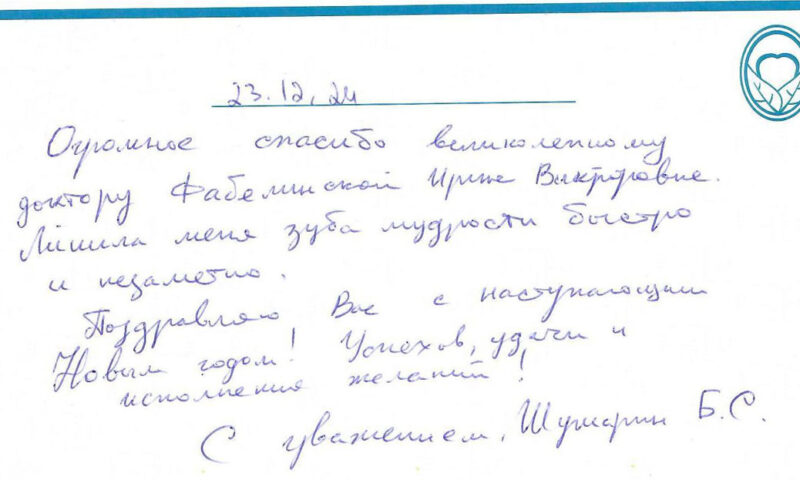 23.12.24
Огромное спасибо великолепному
доктору Фабелинской Ирине Викторовне.
Лишила меня зуба мудрости быстро
и незаметно.
Поздравляю Вас с наступающим
Новым годом! Успехов, удачи и
исполнения желаний!
С уважением, Шумарин Б.С.